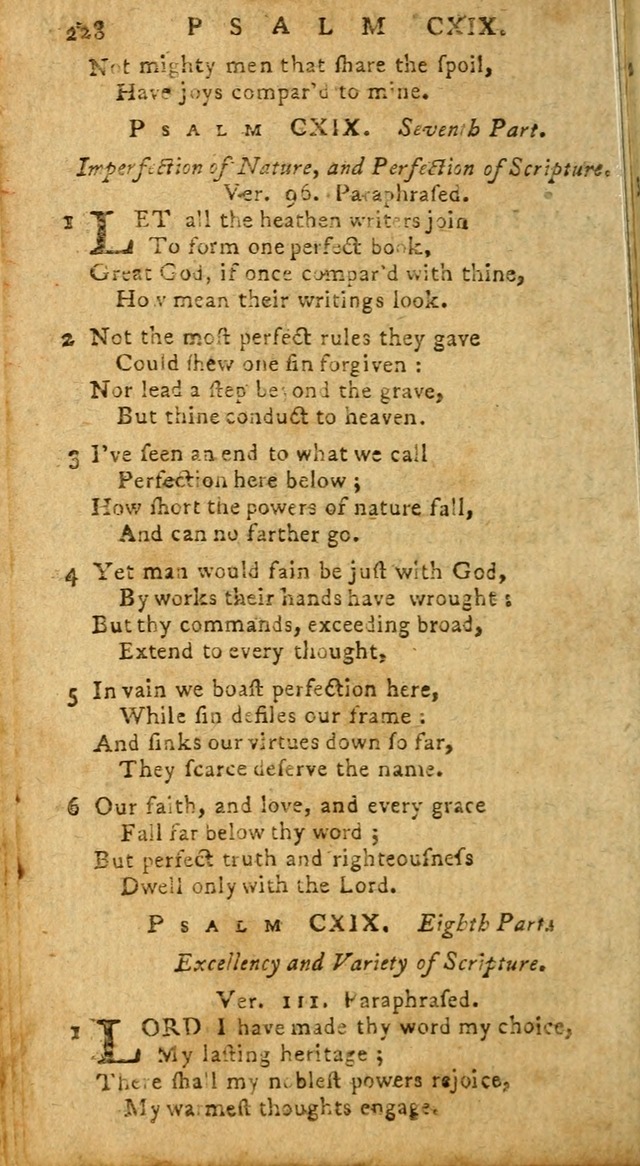 228 PSALM CXIX.
Not mighty men that ſhare the ſpoil,
Have joys compar'd to mine.
PSALM CXIX. Seventh Part.
Imperfection of Nature, and Perfection of Scripture.
Ver. 96. Paraphraſed.
1 LET all the heathen writers join
To form one perfect book,
Great God, if once compar'd with thine,
How mean their writings look.
2 Not the moſt perfect rules they gave
Could ſhew one ſin forgiven :
Nor lead a ſtep beyond the grave,
But thine conduct to heaven.
3 I've ſeen an end to what we call
Perfection here below ;
How ſhort the powers of nature fall,
And can no farther go.
4 Yet man would fain be juſt with God,
By works their hands have wrought :
But thy commands, exceeding broad,
Extend to every thought.
5 In vain we boaſt perfection here,
While ſin defiles our frame :
And ſinks our virtues down ſo far,
They ſcarce deſerve the name.
6 Our faith, and love, and every grace
Fall far below thy word ;
But perfect truth and righteouſneſs
Dwell only with the Lord.
PSALM CXIX. Eighth Part.
Excellency and Variety of Scripture.
Ver. 111. Paraphraſed.
1 LORD I have made thy word my choice,
My laſting heritage ;
There ſhall my nobleſt powers rejoice,
My warmeſt thoughts engage.